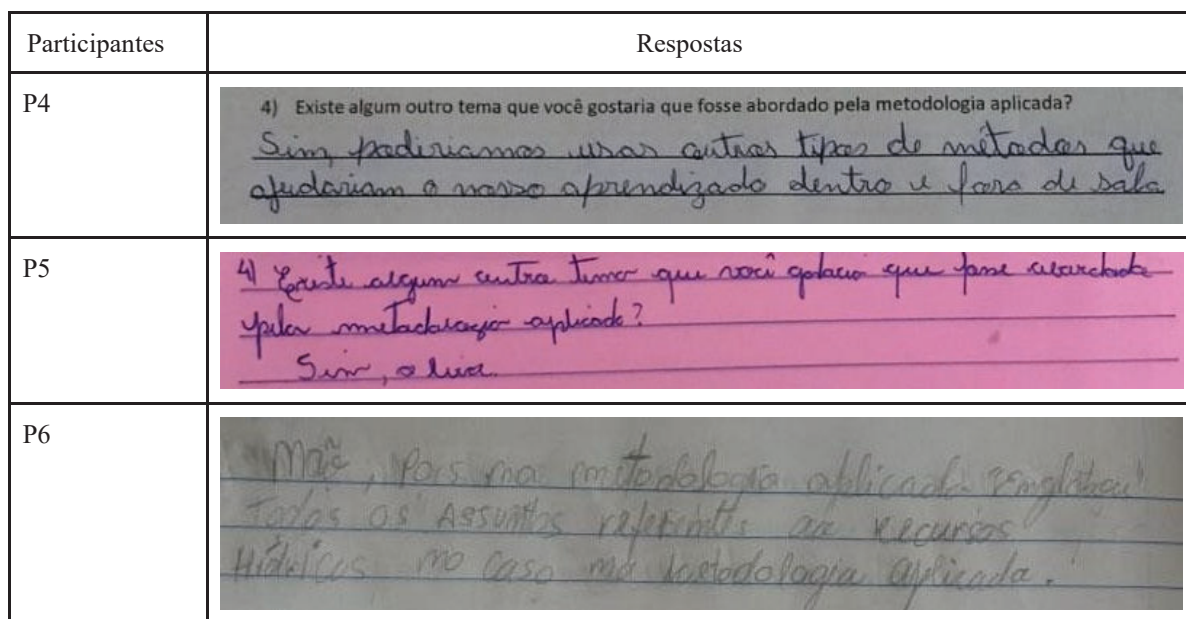 Participantes Respostas
P4
4) Existe algum outro tema que você gostaria que fosse abordado pela metodologia aplicada?
Sim, poderiamos usar outros tipos de métodos que
ajudariam o nosso aprendizado dentro e fora de sala
P5
4) Existe algum outro tema que você gostaria que fosse abordado
pela metodologia aplicada?
Sim, o lixo.
P6
Não, Pois na metodologia aplicada Englobou
Todos os Assuntos referentes ao Recursos
Hídricos no caso na metodologia aplicada.